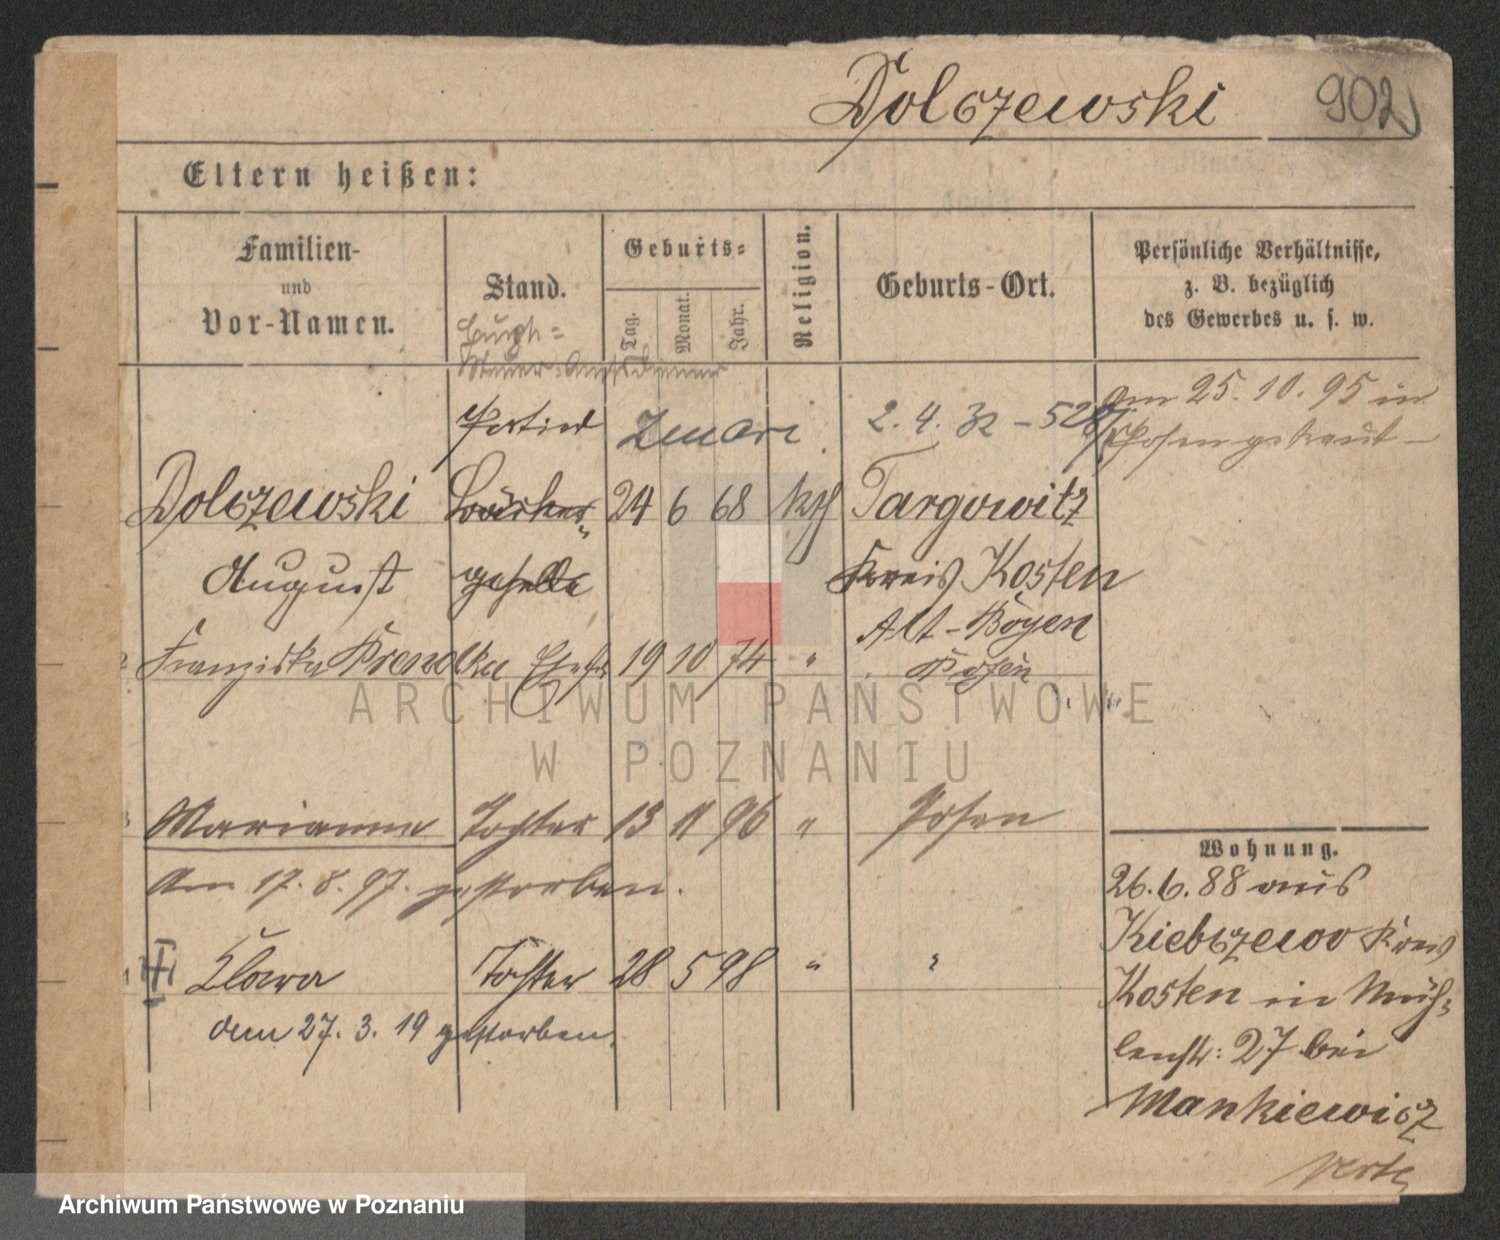 Dolczewski 902
Eltern heißen:
Familien-
und
Vor-Namen.
Stand.
Geburts-
Tag.
Monat.
Jahr.
Religion.
Geburts-Ort.
Persönliche Verhältnisse,
z. B. bezüglich
des Gewerbes u. s. w.
Portier
2. 4. 32 - 
am 25. 10. 95 in
Posen getraut -
Dolczewski Bäcker- 24 6 68 kth Targowitz
August geselle Kreis Kosten
Alt-Boyen
Franziska Ehefr 19 10 74 " Kosten
Marianna Tochter 13 11 96 " Posen
Am 17. 8. 97. gestorben.
Klara Tochter 28 5 98 " "
dem 27. 3. 19 gestorben.
Wohnung.
26. 6. 88 aus
Kiebczewo Kreis
Kosten in Müh-
lenstr: 27 bei
Mankiewicz
verte
ARCHIWUM PAŃSTWOWE
W POZNANIU
Archiwum Państwowe w Poznaniu